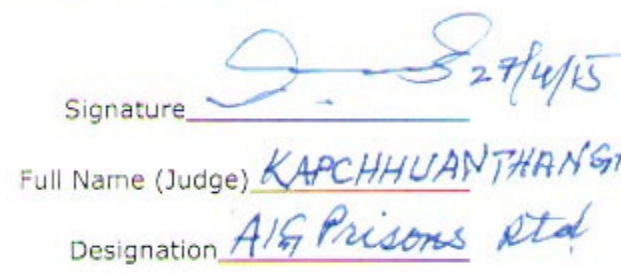 Signature 27/4/15
Full Name (Judge) KAPCHHUANTHANGA
Designation AIG Prisons Rtd